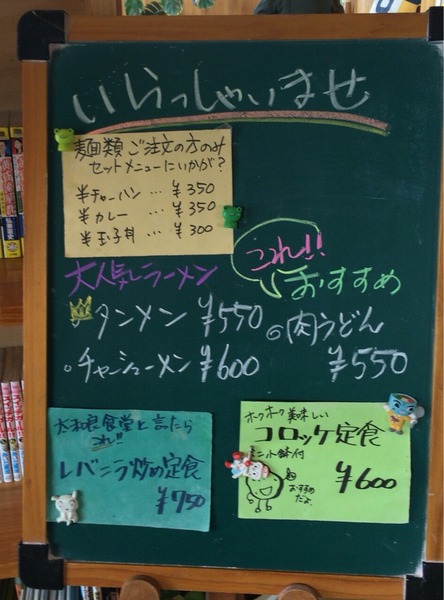 いらっしゃいませ
麺類ご注文の方のみ
セットメニューにいかが?
半チャーハン…¥350
半カレー…¥350
半玉子丼…¥300
大人気ラーメン
タンメン ¥550
チャーシューメン ¥600
これ!!
おすすめ
肉うどん
¥550
大和食堂と言たら
これ!!
レバニラ炒め定食
¥750
ホクホク美味しい
コロッケ定食
ミニ小鉢付
¥600
おすすめ
だよ